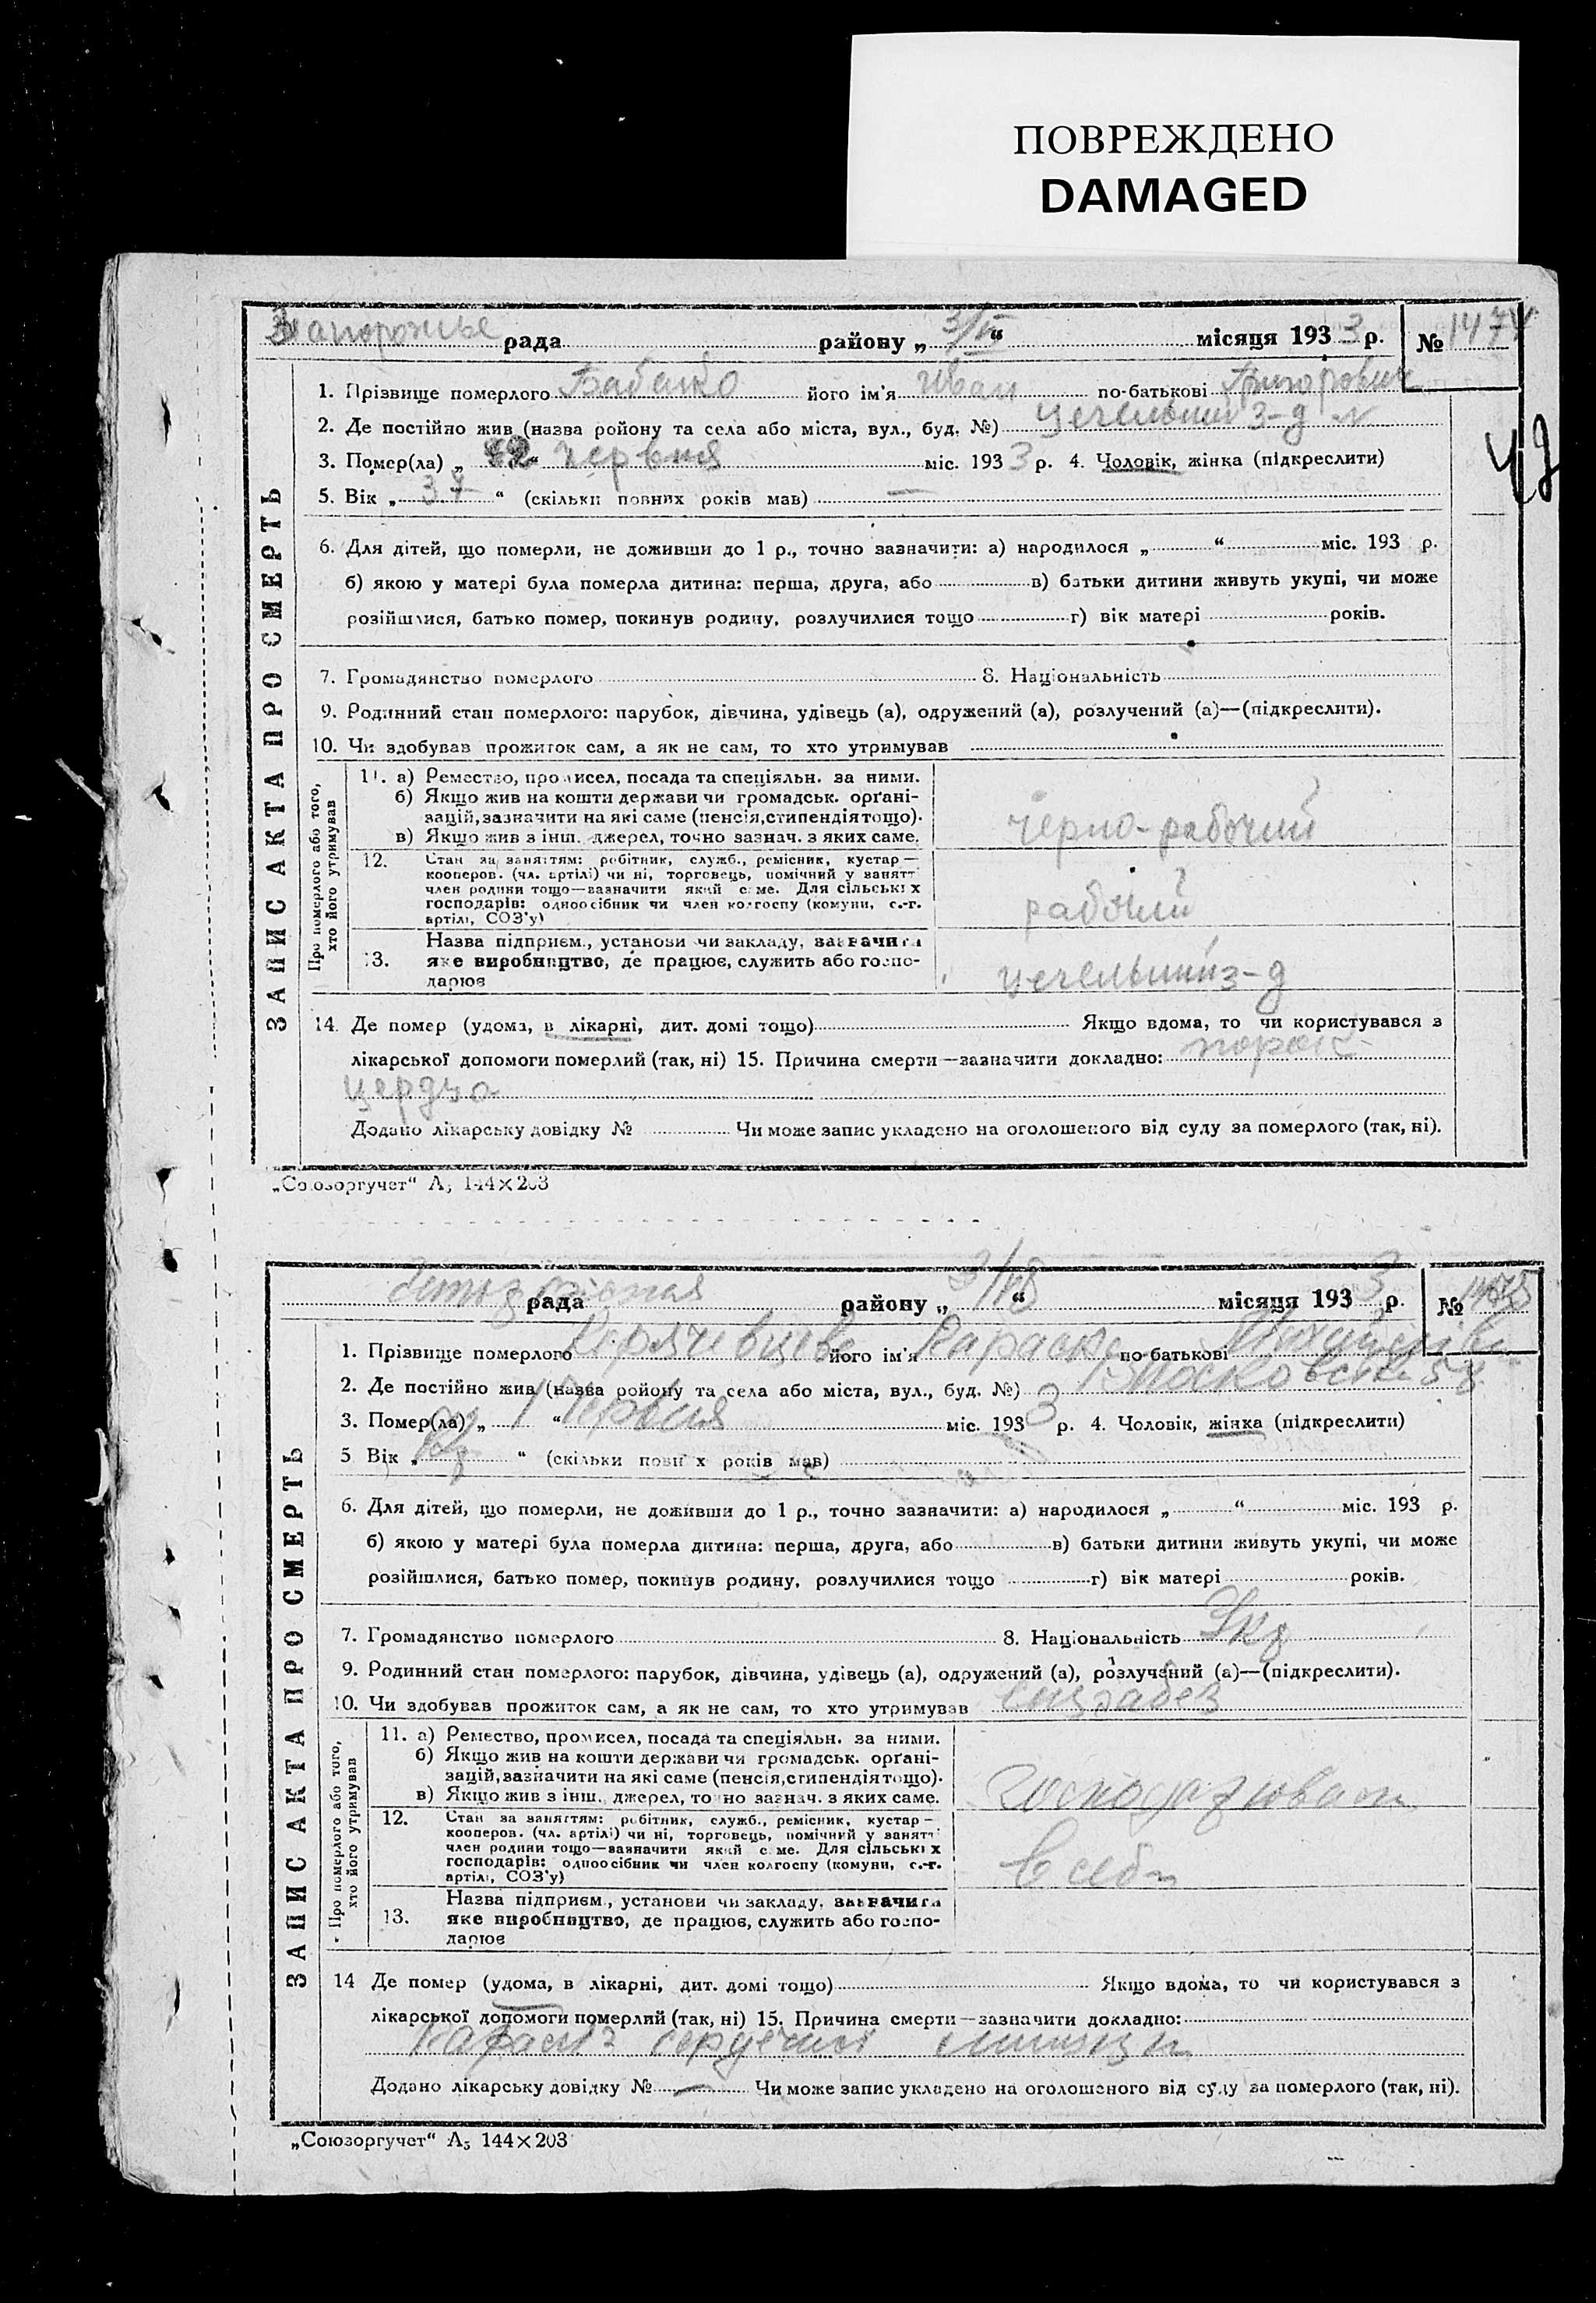 ПОВРЕЖДЕНО
DAMAGED
Запорожье рада району „ 3/VI “ місяця 193 3 р. № 1474
ЗАПИС АКТА ПРО СМЕРТЬ
1. Прізвище померлого Бабайко його ім'я Иван по-батькові Григорович
2. Де постійно жив (назва ройону та села або міста, вул., буд. №) з-д
3. Помер(ла) „ 2 “ червня міс. 193 3 р. 4. Чоловік, жінка (підкреслити)
5. Вік „ 37 “ (скільки повних років мав) —
6. Для дітей, що померли, не доживши до 1 р., точно зазначити: а) народилося „ “ міс. 193 р.
б) якою у матері була померла дитина: перша, друга, або в) батьки дитини живуть укупі, чи може
розійшлися, батько помер, покинув родину, розлучилися тощо г) вік матері років.
7. Громадянство померлого 8. Національність
9. Родинний стан померлого: парубок, дівчина, удівець (а), одружений (а), розлучений (а)—(підкреслити).
10. Чи здобував прожиток сам, а як не сам, то хто утримував
Про померлого або того, хто його утримував
11. а) Ремество, промисел, посада та спеціяльн. за ними.
б) Якщо жив на кошти держави чи громадськ. орґані-
зацій, зазначити на які саме (пенсія, стипендія тощо).
в) Якщо жив з інш. джерел, точно зазнач. з яких саме.
черно-рабочий
12. Стан за заняттям: робітник, служб., ремісник, кустар—
кооперов. (чл. артілі) чи ні, торговець, помічний у занятт
член родини тощо—зазначити який саме. Для сільських
господарів: одноосібник чи член колгоспу (комуни, с.-г.
артілі, СОЗ'у)
рабочий
13. Назва підприєм., установи чи закладу, зазначити
яке виробництво, де працює, служить або госпо-
дарює
з-д
14. Де помер (удома, в лікарні, дит. домі тощо) Якщо вдома, то чи користувався з
лікарської допомоги померлий (так, ні) 15. Причина смерти—зазначити докладно: порок
Додано лікарську довідку № Чи може запис укладено на оголошеного від суду за померлого (так, ні).
„Союзоргучет“ А5 144×203
рада району „ 3/VI “ місяця 193 3 р. № 1475
ЗАПИС АКТА ПРО СМЕРТЬ
1. Прізвище померлого його ім'я Параска по-батькові
2. Де постійно жив (назва ройону та села або міста, вул., буд. №) Московська
3. Помер(ла) „ 1 “ червня міс. 193 3 р. 4. Чоловік, жінка (підкреслити)
5 Вік „ “ (скільки повних років мав)
6. Для дітей, що померли, не доживши до 1 р., точно зазначити: а) народилося „ “ міс. 193 р.
б) якою у матері була померла дитина: перша, друга, або в) батьки дитини живуть укупі, чи може
розійшлися, батько помер, покинув родину, розлучилися тощо г) вік матері років.
7. Громадянство померлого 8. Національність Укр
9. Родинний стан померлого: парубок, дівчина, удівець (а), одружений (а), розлучений (а)—(підкреслити).
10. Чи здобував прожиток сам, а як не сам, то хто утримував
Про померлого або того, хто його утримував
11. а) Ремество, промисел, посада та спеціяльн. за ними.
б) Якщо жив на кошти держави чи громадськ. орґані-
зацій, зазначити на які саме (пенсія, стипендія тощо).
в) Якщо жив з інш. джерел, точно зазнач. з яких саме.
господарювати
12. Стан за заняттям: робітник, служб., ремісник, кустар—
кооперов. (чл. артілі) чи ні, торговець, помічний у занятт
член родини тощо—зазначити який саме. Для сільських
господарів: одноосібник чи член колгоспу (комуни, с.-г.
артілі, СОЗ'у)
в себе
13. Назва підприєм., установи чи закладу, зазначити
яке виробництво, де працює, служить або госпо-
дарює
14 Де помер (удома, в лікарні, дит. домі тощо) Якщо вдома, то чи користувався з
лікарської допомоги померлий (так, ні) 15. Причина смерти—зазначити докладно:
параліч
Додано лікарську довідку № — Чи може запис укладено на оголошеного від суду за померлого (так, ні).
„Союзоргучет“ А5 144×203